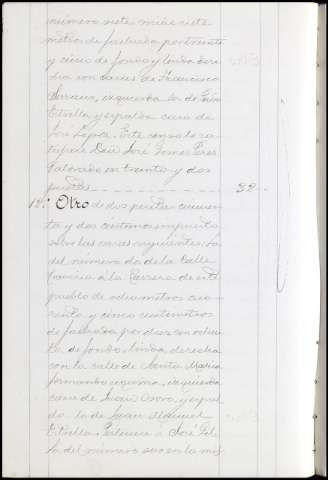 número siete mide siete
metros de fachada por veinte
y cinco de fondo y linda dere-
cha con casas de Francisco
Serrano, izquierda la de
Estrella y espalda casa de
José López. Este censo lo sa-
tisface Don José Gomez Perez
valorado en treinta y dos
pesetas 32
12º Otro de dos pesetas cincuen-
ta y dos centimos impuesto
sobre las casas siguientes: La
del número de la Calle
á la Carrera de este
pueblo de ocho metros cua-
renta y cinco centimetros
de fachada por diez con ochen-
ta de fondo linda derecha
con la calle de Santa Maria
formando esquina, izquierda
casa de y espal-
da la de Juan Manuel
Estrella. Pertenece á José
La del número seis en la mis-